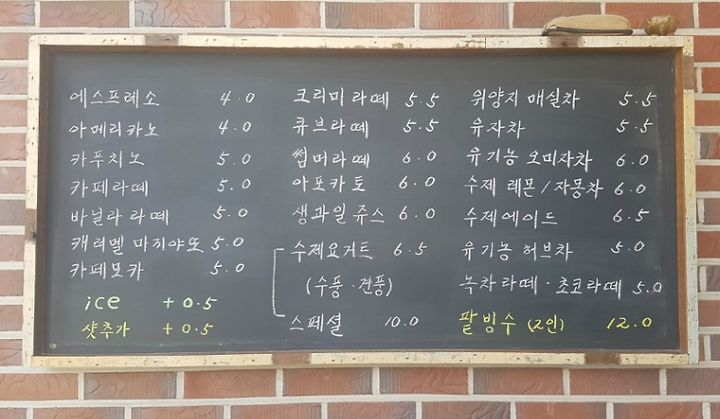 에스프레소 4.0
아메리카노 4.0
카푸치노 5.0
카페라떼 5.0
바닐라 라떼 5.0
캐러멜 마끼야또 5.0
카페모카 5.0
ice +0.5
샷추가 +0.5
크리미 라떼 5.5
큐브라떼 5.5
썸머라떼 6.0
아포카토 6.0
생과일 쥬스 6.0
수제요거트 6.5
(수풍·견풍)
스페셜 10.0
위양지 매실차 5.5
유자차 5.5
유기농 오미자차 6.0
수제 레몬/자몽차 6.0
수제에이드 6.5
유기농 허브차 5.0
녹차라떼·초코라떼 5.0
팥빙수 (2인) 12.0